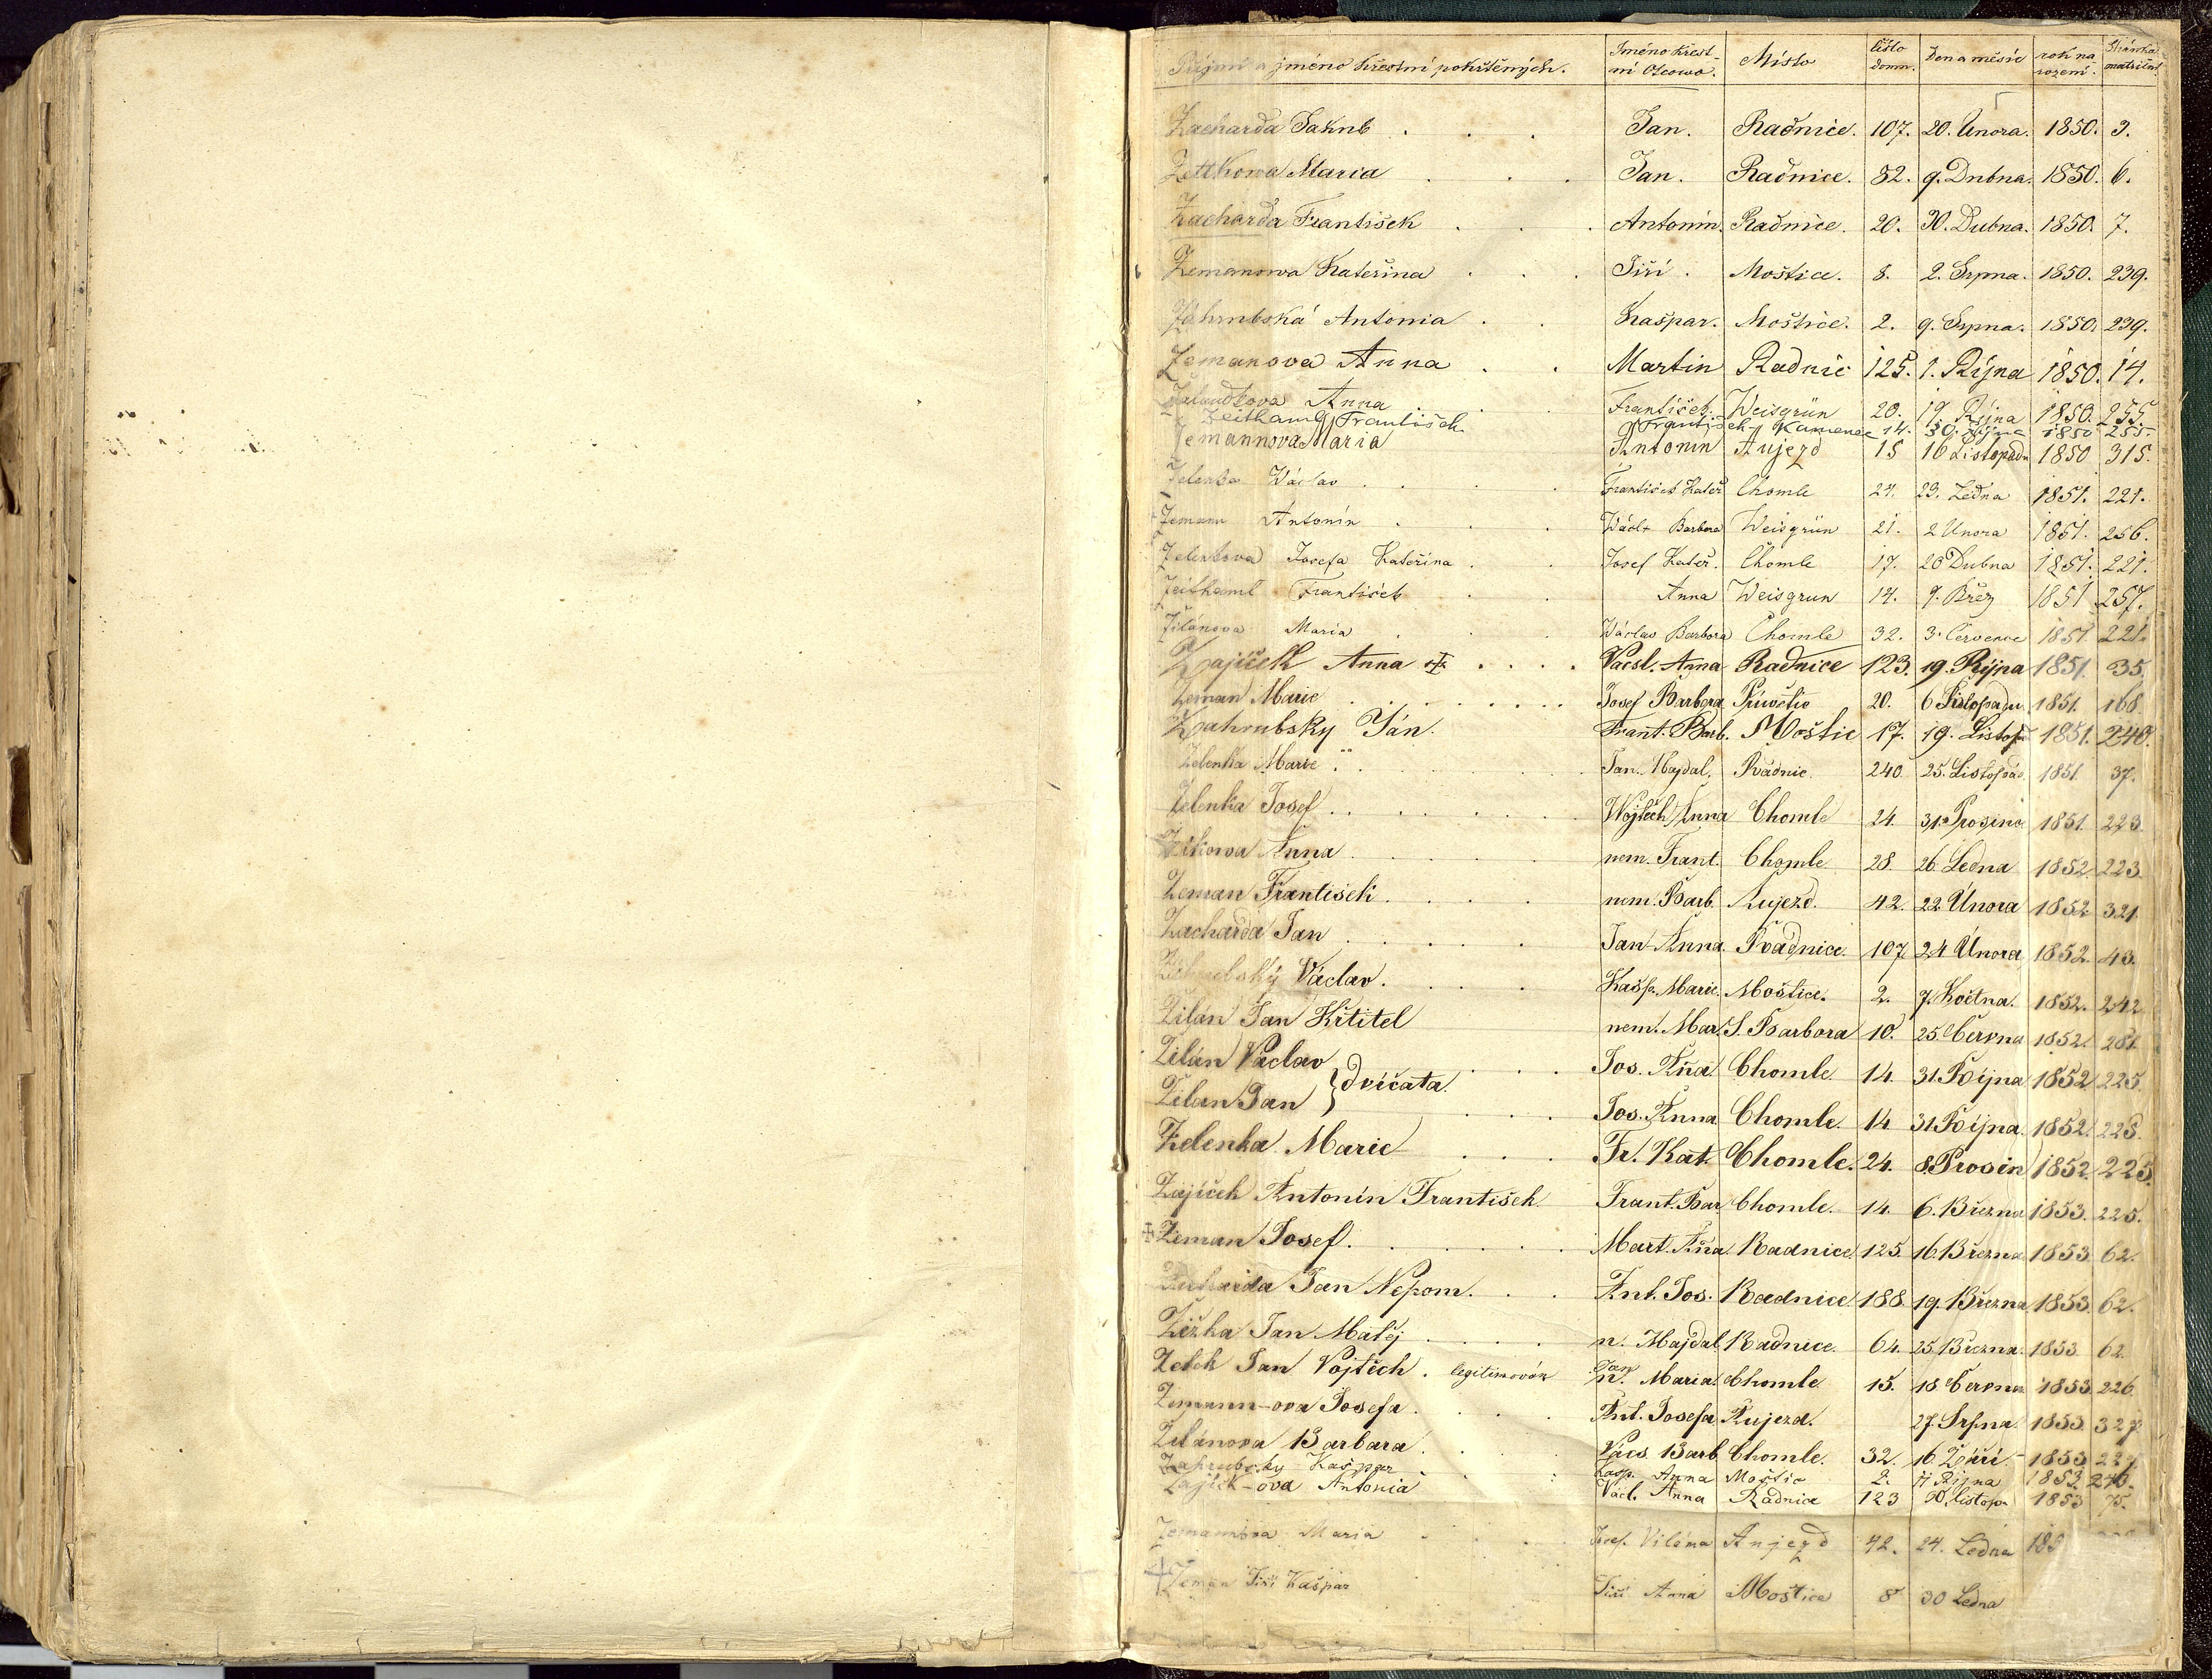 Příjmí a jméno křestní pokřtěných. Jméno křestní Otcowo. Místo číslo domu. Den a měsíc rok narození. Stránka matriční
Zacharda Jakub Jan. Radnice. 107. 20. Února. 1850. 3.
Zettkowa Maria Jan. Radnice. 82. 9. Dubna. 1850. 6.
Zacharda František Antonín. Radnice. 20. 30. Dubna. 1850. 7.
Zemanowa Kateřina Jiří. Moštice. 8. 2. Srpna. 1850. 239.
Zahrubská Antonia Kašpar. Moštice. 2. 9. Srpna. 1850. 239.
Zemanova Anna Martin Radnic 125. 1. Října 1850. 14.
Anna František Weisgrün 20. 19. Října 1850. 255.
Zeithaml František František Kamenec 14. 30. Října 1850 255.
Zemannova Maria Antonín Aujezd 15 16 Listopadu 1850 315.
Zelenka Wáclav František Kateř Chomle 24. 23. Ledna 1851. 221.
Zemann Antonín Wácl. Barbora Weisgrün 21. 2 Unora 1851. 256.
Zelenkova Josefa Kateřina Josef Kateř. Chomle 17. 20 Dubna 1851. 221.
Zeithaml František Anna Weisgrun 14. 9. Březn 1851 257.
Žilanova Maria Wáclav Barbora Chomle 32. 3. Července 1851. 221.
Zajíček Anna Vacsl. Anna Radnice 123. 19. Října 1851. 35.
Zeman Marie Josef Barbora 20. 6 Listopadu 1851. 168.
Zahrubsky Ján. Frant. Barb. Moštic 17. 19. Listop. 1851. 240.
Zelenka Marie Jan. Majdal. Radnic. 240. 25. Listopad. 1851. 37.
Zelenka Josef Wojtěch Anna Chomle 24. 31. Prosince 1851. 223.
Anna nem. Frant. Chomle 28. 26. Ledna 1852. 223.
Zeman František nem. Barb. Aujezd. 42. 22. Února 1852 321.
Zacharda Jan Jan Anna. Radnice. 107 24 Února 1852. 43.
Zahrubský Václav. Kašp. Marie. Moštice. 2. 7. Května. 1852. 242.
Žilán Jan Křtitel nem. Mar. S. Barbora 10. 25. Června 1852. 281.
Žilán Václav } dvíčata Jos. Aña Chomle. 14. 31. Října 1852 225.
Žilan Jan Jos. Anna Chomle. 14 31. Října. 1852. 225.
Zelenka Marie Fr. Kat. Chomle. 24. 8. Prosin 1852. 225.
Zajíček Antonín František Frant. Bar. Chomle. 14. 6. Března 1853. 225.
Zeman Josef. Mart. Aña Radnice. 125. 16. Března 1853. 62.
Zacharda Jan Nepom. Ant. Jos. Radnice 188. 19. Března 1853. 62.
Žižka Jan Matěj n. Majdal. Radnice. 64. 25. Března. 1853. 62.
Jan Vojtěch. legitimován Jan n. Maria. Chomle. 15. 18. Června 1853. 226.
Zemann-ova Josefa. Ant. Josefa Aujezd. 27. Srpna 1853. 327.
Žilánova Barbara. Vács. Barb. Chomle. 32. 16. Září 1853. 227.
Zahrubsky Kašpar Kašp. Anna Moštic 2. 11 Října 1853. 246.
Zajíčk-ova Antonia Václ. Anna Radnice 123 30. Listop. 1853 75.
Zemannova Maria Josef. Viléma Aujezd 42. 24. Ledna 185
Zeman Jiří Kašpar Jiří Anna Moštice 8 30 Ledna